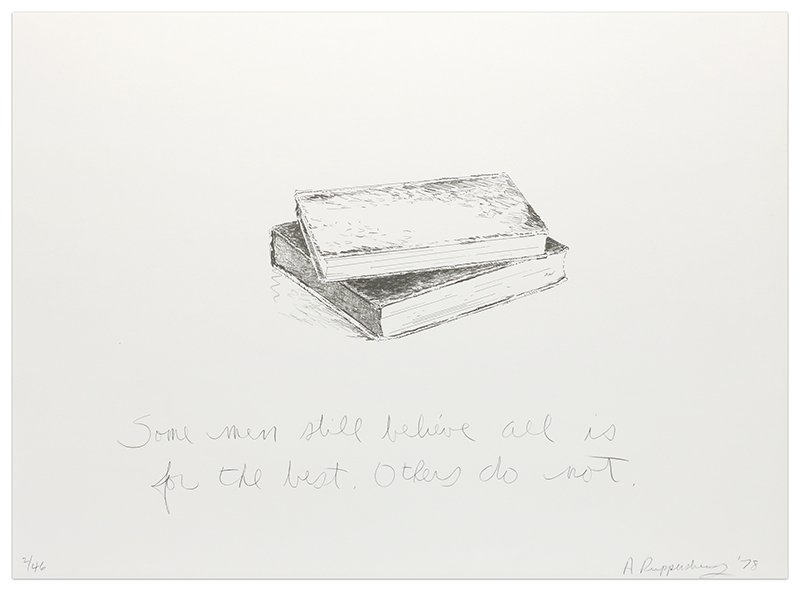 Some men still believe all is
for the best. Others do not.
2/46
A Ruppersberg '78